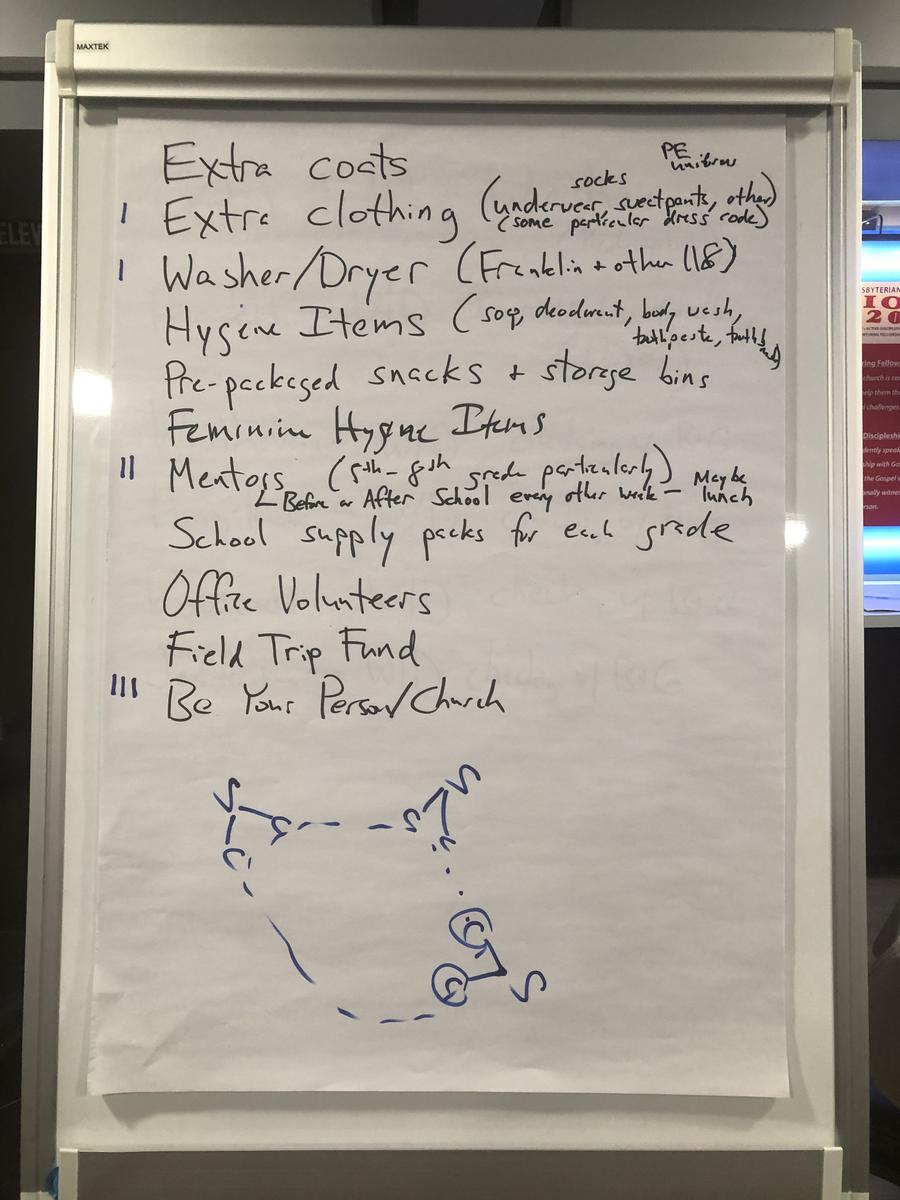 MAXTEK
Extra coats
PE
uniform
socks
I Extra clothing (underwear, sweatpants, other)
(some particular dress code)
I Washer/Dryer (Franklin + other 118)
Hygiene Items (soap, deodorant, body wash,
toothpaste,
Pre-packaged snacks + storage bins
Feminine Hygiene Items
II Mentors (5th - 8th grade particularly) Maybe
Before or After School every other week - lunch
School supply packs for each grade
Office Volunteers
Field Trip Fund
III Be Your Person/Church
S S
C C
C C
C
C S
ELEV
SBYTERIAN
IO
20
ring Fellow
church is co
elp them th
l challenges
Discipleshi
dently speak
ship with Go
the Gospel
onally witnes
rson.